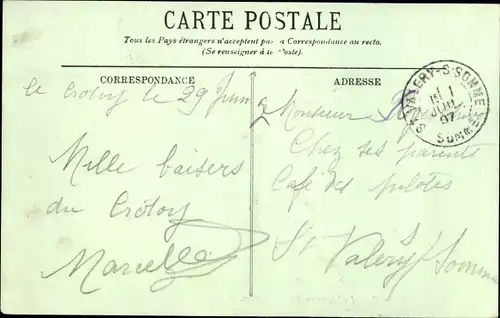 CARTE POSTALE
Tous les Pays étrangers n'acceptent pas la Correspondance au recto.
(Se renseigner à la Poste).
CORRESPONDANCE
ADRESSE
Le Crotoy le 29 Juin
Mille baisers
du Crôtoy
Marcel
Monsieur
Chez ses parents
Café des pilotes
St Valéry s/ Somme
ST VALERY-S-SOMME
SOMME